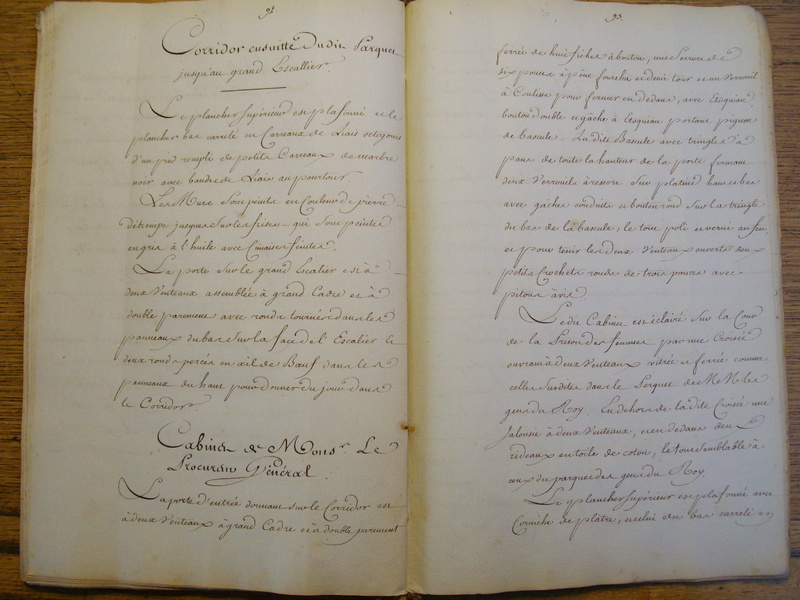 92
Corridor ensuitte Du dit Parquet
jusqu'au grand Escallier.
Le plancher supérieur est plafonné et le
plancher bas carrelé en Carreaux de Liais octogones
d'un pied remplis de petits Carreaux de marbre
noir avec bandes de Liais au pourtour.
Les Murs sont peints en Couleur de pierre
détrempe jusques sur les frises qui sont peintes
en gris à l'huile avec Cimaises feintes.
La porte sur le grand Escalier est à
deux Venteaux assemblée à grand Cadre et à
double parement avec ronds tournés dans les
panneaux du bas sur la face de l'Escalier le
deux ronds percés en œil de Bœuf dans les
panneaux du haut pour donner du jour dans
le Corridor.
Cabinet de Monsr. Le
Procureur Général.
La porte d'entrée donnant sur le Corridor est
à deux Venteaux à grand Cadre et à double parement
93.
ferrée de huit fiches à bouton, une Serrure de
six pouces à pêne fourchu et demi tour et un Verrouil
à Coulisse pour fermer en dedans, avec
bouton double et gâche à portant pignon
de bascule. La dite Bascule avec tringles à
pans de toute la hauteur de la porte fermant
deux Verrouils à ressort sur platine haut et bas
avec gâches conduits et bouton rond sur la tringle
du bas de la bascule; le tout poli et verni au feu,
et pour tenir les deux Venteaux ouverts deux
petits Crochets ronds de trois pouces avec
pitons à vis.
Le du Cabinet est éclairé sur la Cour
de la Prison des femmes par une Croisée
ouvrant à deux Venteaux vitrée et ferrée comme
celle susdite dans le Parquet de MM. les
gens du Roy. En dehors de la dite Croisée une
Jalousie à deux Venteaux, et en dedans deux
rideaux en toile de coton, le tout semblable à
ceux du parquet des gens du Roy.
Le plancher supérieur est plafonné avec
Corniche de plâtre, et celui du bas carrelé en